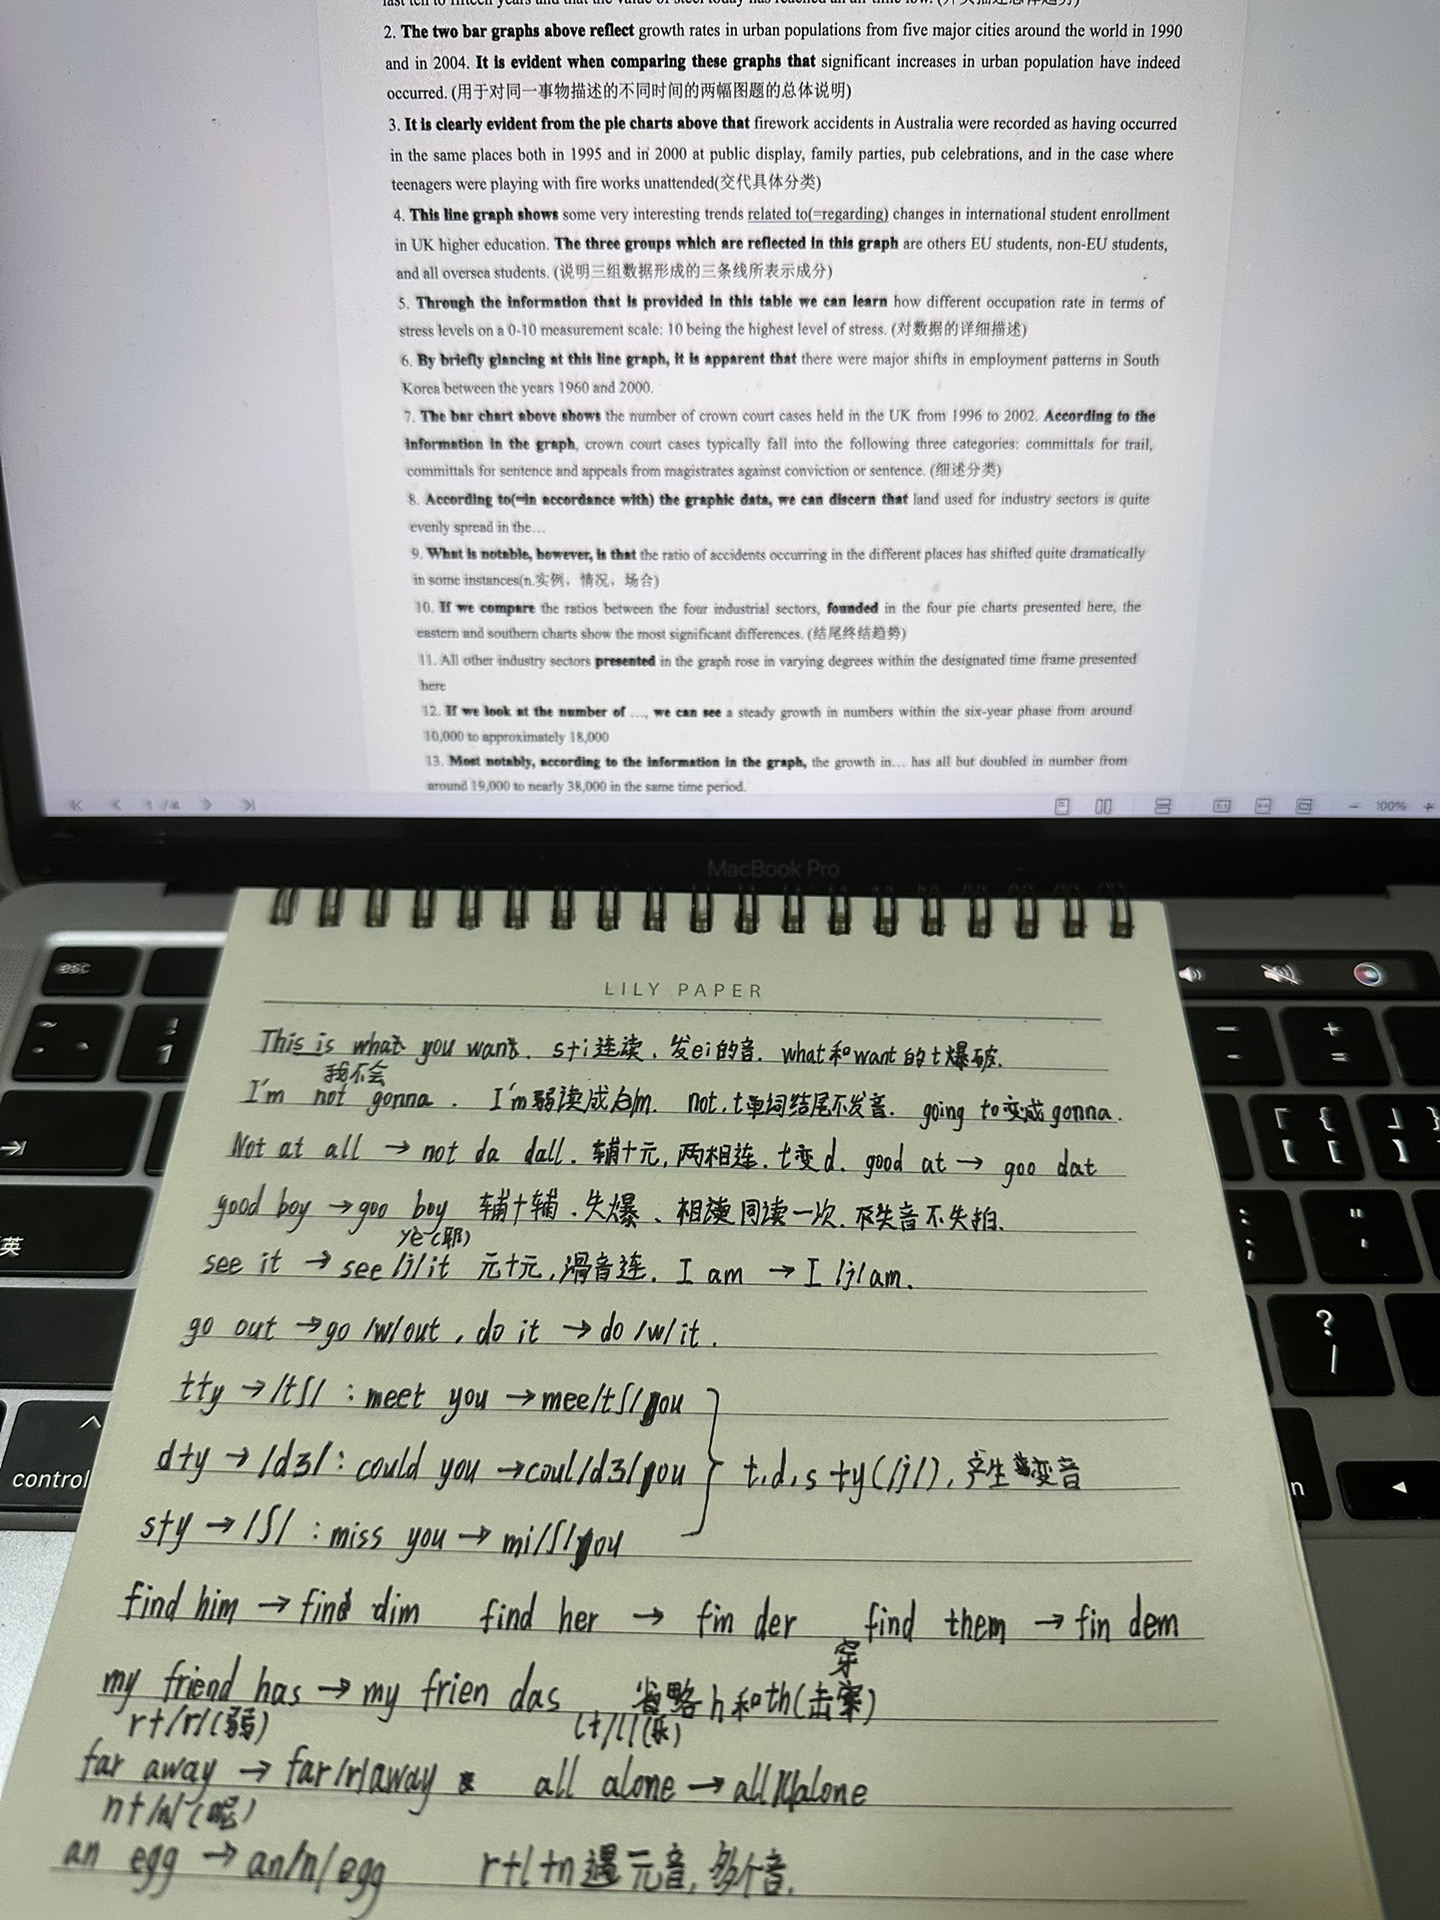 2. The two bar graphs above reflect growth rates in urban populations from five major cities around the world in 1990
and in 2004. It is evident when comparing these graphs that significant increases in urban population have indeed
occurred. (用于对同一事物描述的不同时间的两幅图题的总体说明)
3. It is clearly evident from the pie charts above that firework accidents in Australia were recorded as having occurred
in the same places both in 1995 and in 2000 at public display, family parties, pub celebrations, and in the case where
teenagers were playing with fire works unattended(交代具体分类)
4. This line graph shows some very interesting trends related to(=regarding) changes in international student enrollment
in UK higher education. The three groups which are reflected in this graph are others EU students, non-EU students,
and all oversea students. (说明三组数据形成的三条线所表示成分)
5. Through the information that is provided in this table we can learn how different occupation rate in terms of
stress levels on a 0-10 measurement scale: 10 being the highest level of stress. (对数据的详细描述)
6. By briefly glancing at this line graph, it is apparent that there were major shifts in employment patterns in South
Korea between the years 1960 and 2000.
7. The bar chart above shows the number of crown court cases held in the UK from 1996 to 2002. According to the
information in the graph, crown court cases typically fall into the following three categories: committals for trail,
committals for sentence and appeals from magistrates against conviction or sentence. (细述分类)
8. According to(=in accordance with) the graphic data, we can discern that land used for industry sectors is quite
evenly spread in the…
9. What is notable, however, is that the ratio of accidents occurring in the different places has shifted quite dramatically
in some instances(n.实例，情况，场合)
10. If we compare the ratios between the four industrial sectors, founded in the four pie charts presented here, the
eastern and southern charts show the most significant differences. (结尾终结趋势)
11. All other industry sectors presented in the graph rose in varying degrees within the designated time frame presented
here
12. If we look at the number of …, we can see a steady growth in numbers within the six-year phase from around
10,000 to approximately 18,000
13. Most notably, according to the information in the graph, the growth in… has all but doubled in number from
around 19,000 to nearly 38,000 in the same time period.
1 /4 100%
MacBook Pro
esc
control
英
LILY PAPER
This is what you want. s+i连读、发ei的音. what和want的t爆破.
我不会
I'm not gonna. I'm弱读成am. not, t单词结尾不发音. going to变成gonna.
Not at all → not da dall. 辅十元, 两相连. t变d. good at → goo dat
good boy → goo boy 辅十辅、失爆、相连同读一次. 失音不失拍.
ye(耶)
see it → see /j/ it 元十元, 滑音连. I am → I /j/ am.
go out → go /w/ out, do it → do /w/ it.
t+y → /tʃ/ : meet you → mee/tʃ/ou
d+y → /dʒ/ : could you → coul/dʒ/ou t.d.s +y(/j/), 产生变音
s+y → /ʃ/ : miss you → mi/ʃ/ou
find him → find dim find her → fin der find them → fin dem
穿
my friend has → my frien das 省略h和th(击)
r+/r/(弱) l+/l/(乐)
far away → far/r/away all alone → all/l/alone
n+/n/(呢)
an egg → an/n/egg r+l+n遇元音, 多个音.